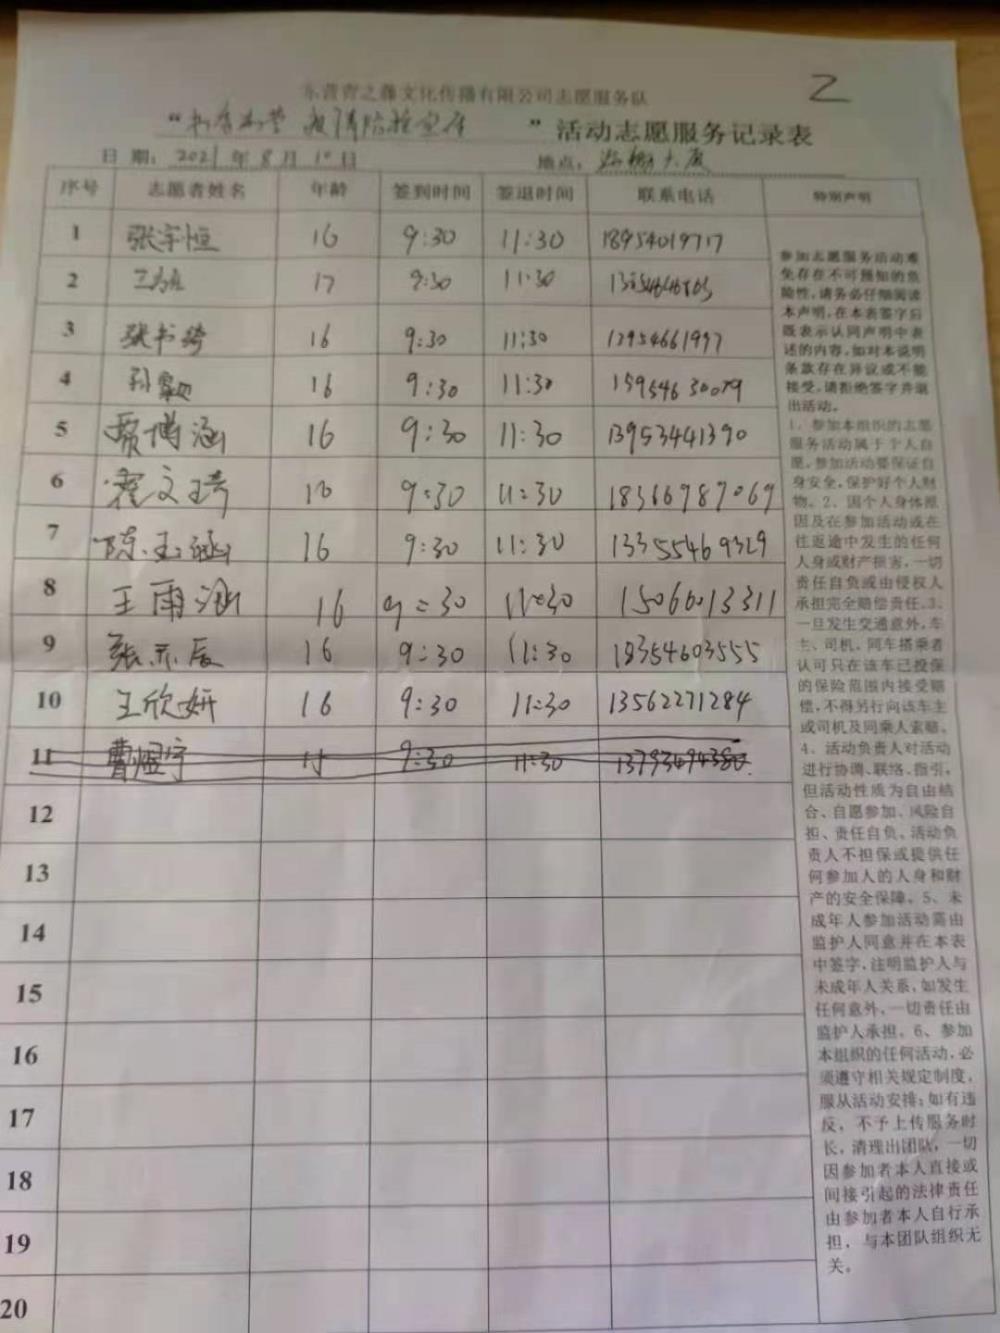 2
东营青之藤文化传播有限公司志愿服务队
“书香东营 疫情防控宣传”活动志愿服务记录表
日期: 2021年8月10日 地点: 大厦
序号 志愿者姓名 年龄 签到时间 签退时间 联系电话 特别声明
1 张宇恒 16 9:30 11:30 18954019717
2 17 9:30 11:30
3 张书绮 16 9:30 11:30
4 孙 16 9:30 11:30 15954630079
5 贾博涵 16 9:30 11:30 13953441390
6 霍文琦 16 9:30 11:30 18366987069
7 陈玉涵 16 9:30 11:30 13355469329
8 王雨涵 16 9:30 11:30 15066013311
9 张亦辰 16 9:30 11:30 18354603555
10 王欣妍 16 9:30 11:30 13562271284
11 曹煜宇 15 9:30 11:30 13793494380
12
13
14
15
16
17
18
19
20
参加志愿服务活动难
免存在不可预知的危
险性,请务必仔细阅读
本声明,在本表签字后
既表示认同声明中表
述的内容,如对本说明
条款存在异议或不能
接受,请拒绝签字并退
出活动。
1、参加本组织的志愿
服务活动属于个人自
愿,参加活动要保证自
身安全,保护好个人财
物。2、因个人身体原
因及在参加活动或在
往返途中发生的任何
人身或财产损害,一切
责任自负或由侵权人
承担完全赔偿责任。3、
一旦发生交通意外,车
主、司机、同车搭乘者
认可只在该车已投保
的保险范围内接受赔
偿,不得另行向该车主
或司机及同乘人索赔。
4、活动负责人对活动
进行协调、联络、指引,
但活动性质为自由结
合、自愿参加、风险自
担、责任自负、活动负
责人不担保或提供任
何参加人的人身和财
产的安全保障。5、未
成年人参加活动需由
监护人同意并在本表
中签字,注明监护人与
未成年人关系,如发生
任何意外,一切责任由
监护人承担。6、参加
本组织的任何活动,必
须遵守相关规定制度,
服从活动安排;如有违
反,不予上传服务时
长,清理出团队,一切
因参加者本人直接或
间接引起的法律责任
由参加者本人自行承
担,与本团队组织无
关。